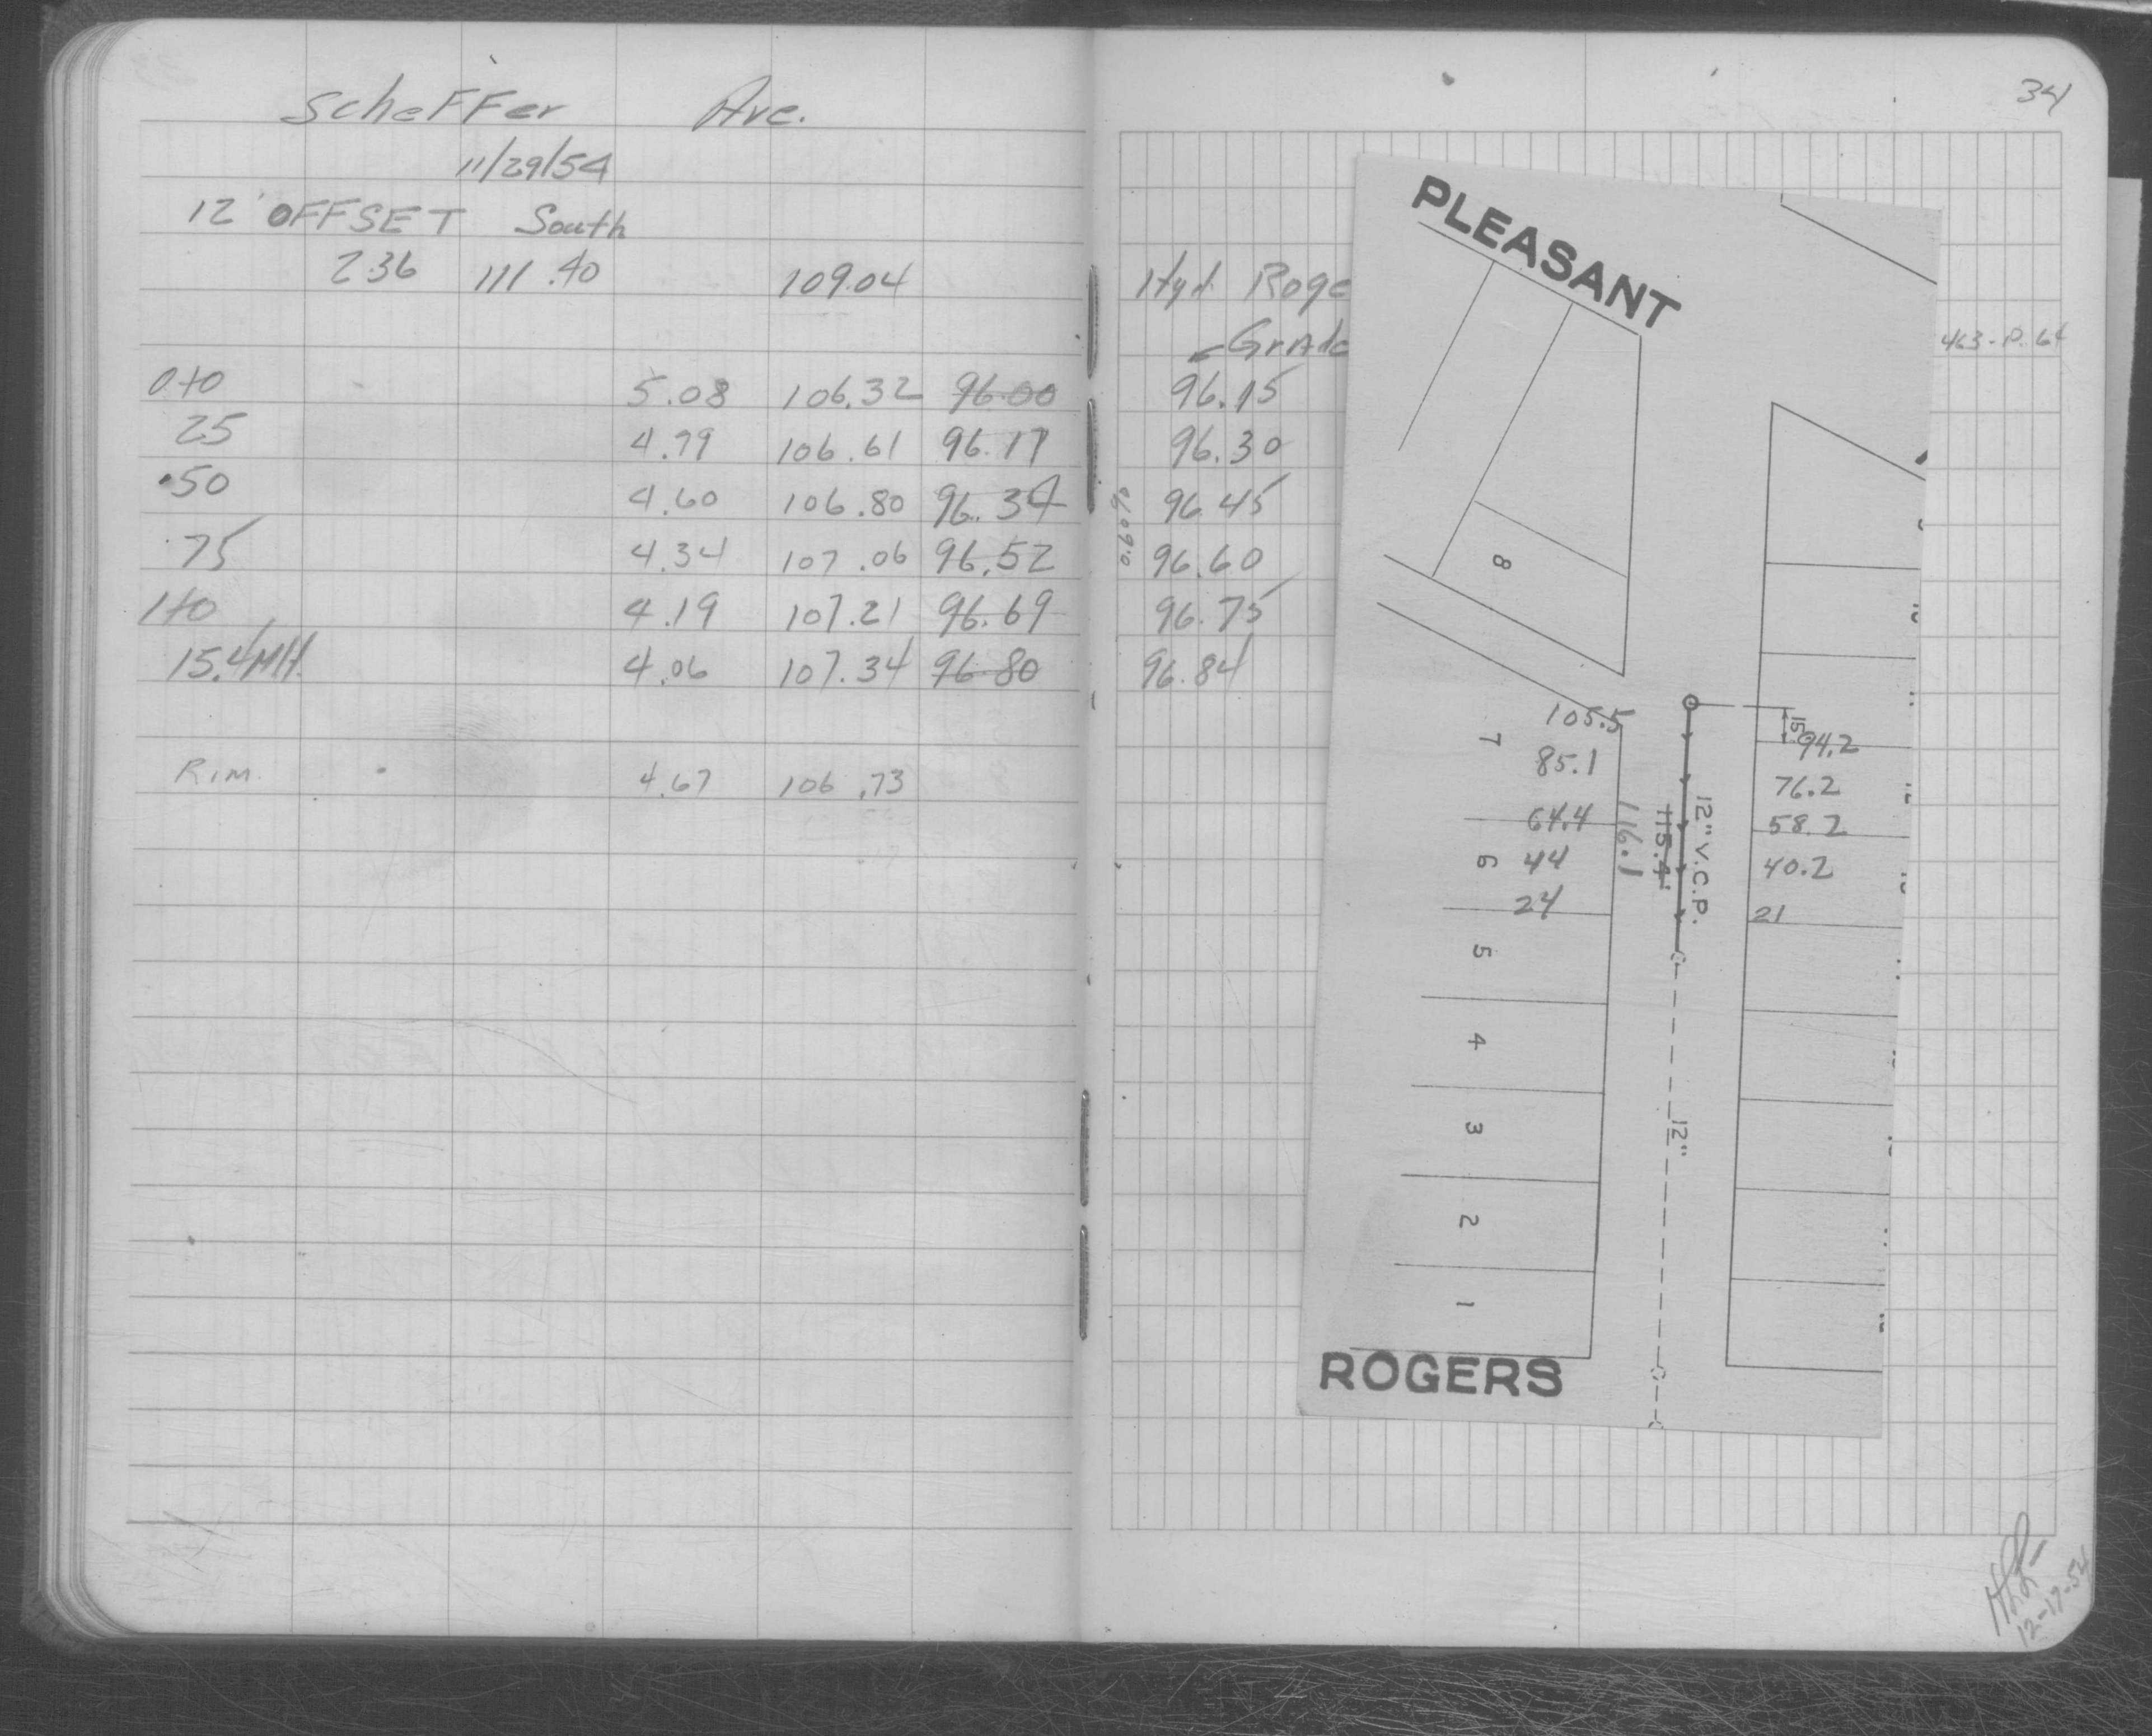 Scheffer Ave.
11/29/54
12' OFFSET South
2.36 111.40 109.04
0+0 5.08 106.32 96.00
25 4.79 106.61 96.17
50 4.60 106.80 96.34
75 4.34 107.06 96.52
1+0 4.19 107.21 96.69
15.4 MH. 4.06 107.34 96.80
Rim. 4.67 106.73
34
Hyd. Roge
Grade
463-P. 64
96.15
96.30
96.45
96.60
96.75
96.84
PLEASANT
8
105.5
7
85.1
64.4
6 44
24
5
4
3
2
1
116.1
115.4'
12" V.C.P.
15'
94.2
76.2
58.2
40.2
21
12"
ROGERS
12-17-54